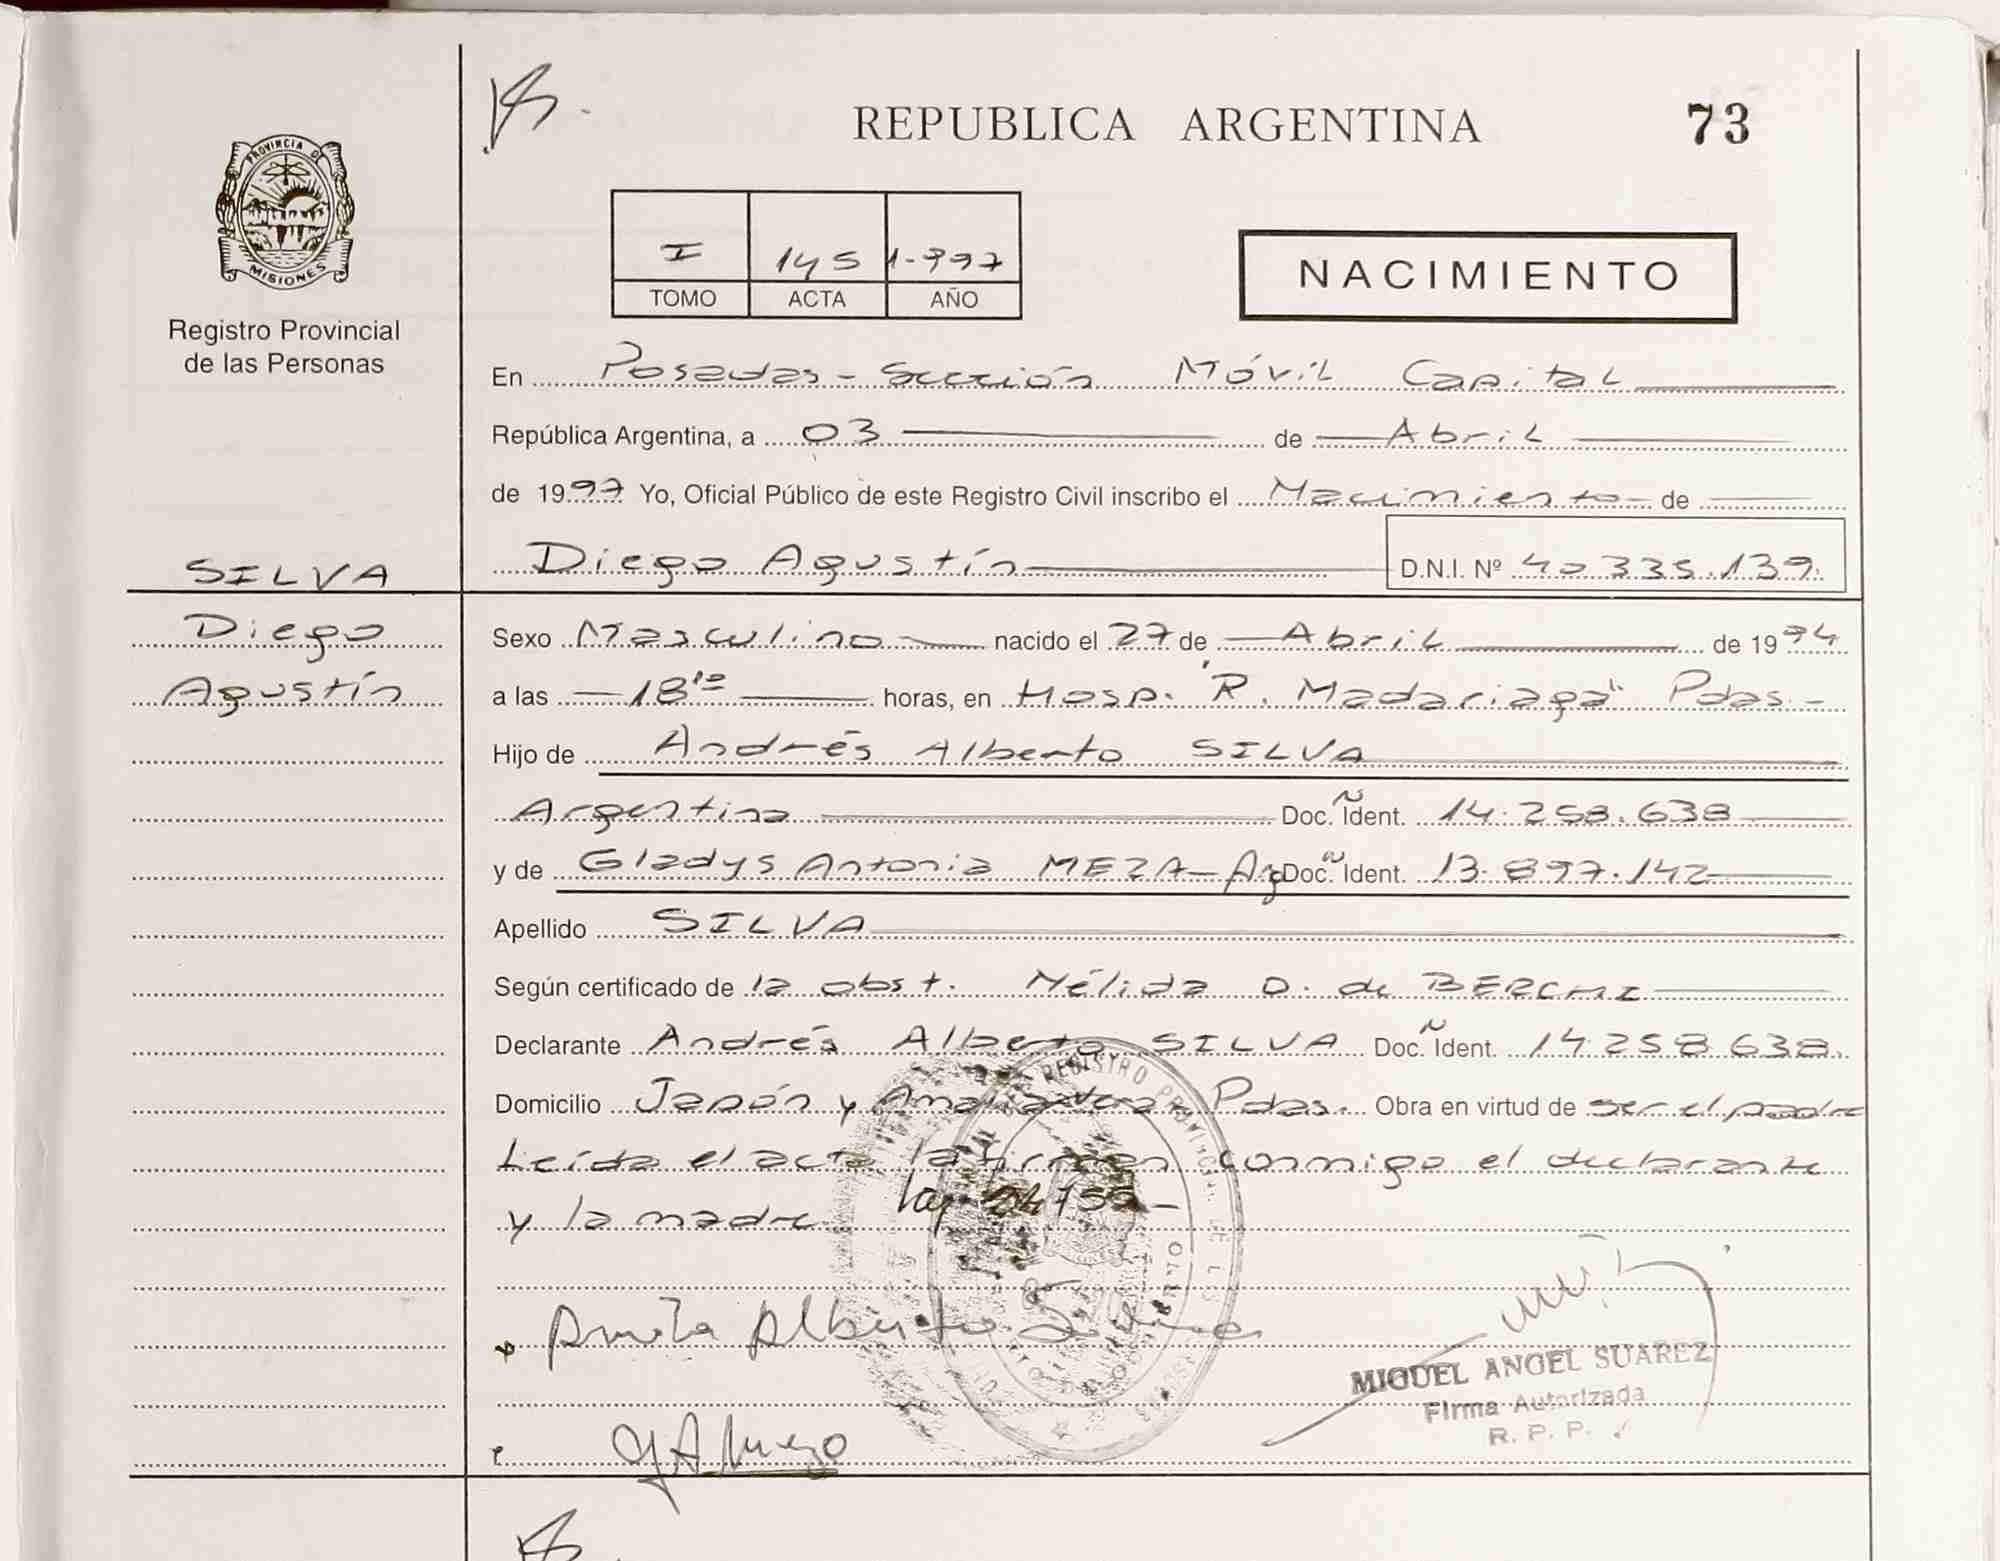 REPUBLICA ARGENTINA 73
PROVINCIA DE
MISIONES
Registro Provincial
de las Personas
I 145 1.997
TOMO ACTA AÑO
NACIMIENTO
En Posadas - Sección Móvil Capital
República Argentina, a 03 de Abril
de 1997 Yo, Oficial Público de este Registro Civil inscribo el Nacimiento de
SILVA Diego Agustín D.N.I. Nº 40.335.139.
Diego Sexo Masculino nacido el 27 de Abril de 1994
Agustín a las 18¹⁰ horas, en Hosp. "R. Madariaga" Pdas.-
Hijo de Andrés Alberto SILVA
Argentino Doc. Ident. 14.258.638
y de Gladys Antonia MEZA - Arg Doc. Ident. 13.897.142
Apellido SILVA
Según certificado de la obst. Nélida D. de
Declarante Andrés Alberto SILVA Doc. Ident. 14.258.638.
Domicilio Japón y Pdas. Obra en virtud de ser el padre
Leída el acta la firman conmigo el declarante
y la madre
REGISTRO PROVINCIAL DE LAS
MIGUEL ANGEL SUAREZ
Firma Autorizada
R. P. P.